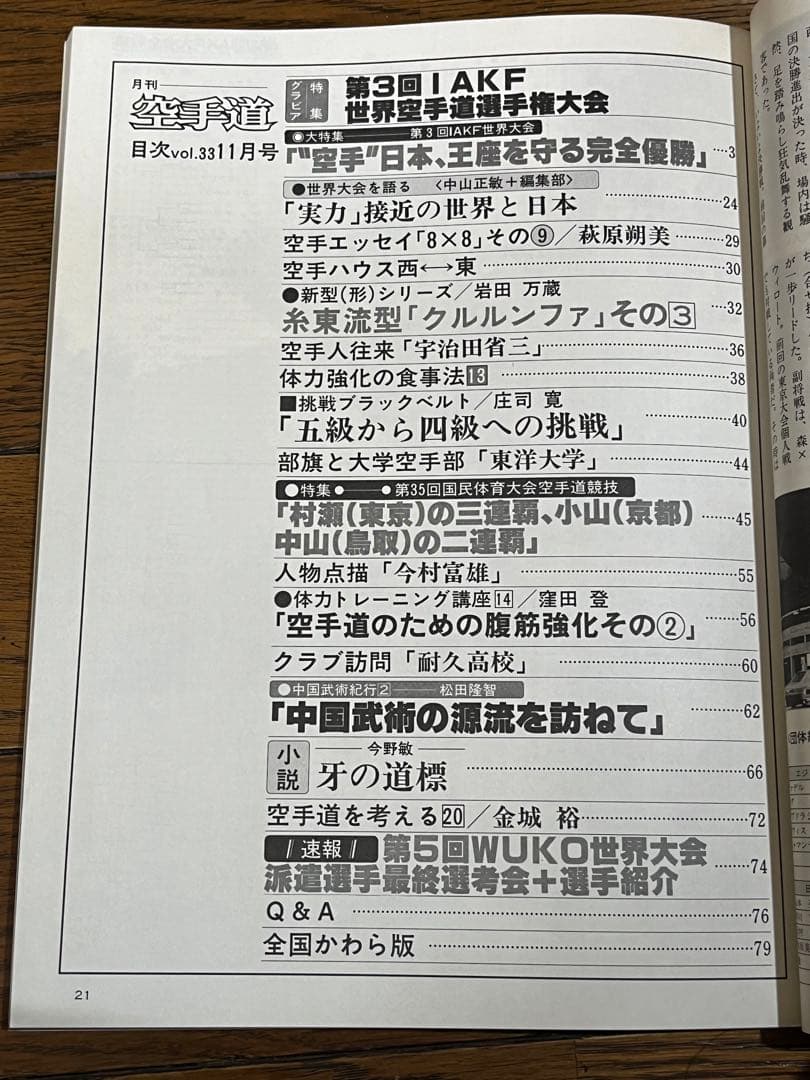 月刊
空手道
目次vol.33 11月号
特集
グラビア
第3回IAKF
世界空手道選手権大会
◉大特集 第3回IAKF世界大会
「“空手”日本、王座を守る完全優勝」……3
●世界大会を語る 〈中山正敏＋編集部〉
「実力」接近の世界と日本……24
空手エッセイ「8×8」その⑨／萩原朔美……29
空手ハウス西←→東……30
●新型(形)シリーズ／岩田 万蔵
糸東流型「クルルンファ」その3……32
空手人往来「宇治田省三」……36
体力強化の食事法13……38
■挑戦ブラックベルト／庄司 寛
「五級から四級への挑戦」……40
部旗と大学空手部「東洋大学」……44
●特集●──●第35回国民体育大会空手道競技
「村瀬(東京)の三連覇、小山(京都)
中山(鳥取)の二連覇」……45
人物点描「今村富雄」……55
●体力トレーニング講座14／窪田 登
「空手道のための腹筋強化その②」……56
クラブ訪問「耐久高校」……60
●中国武術紀行2──松田隆智
「中国武術の源流を訪ねて」……62
小説
今野敏
牙の道標……66
空手道を考える20／金城 裕……72
速報 第5回WUKO世界大会
派遣選手最終選考会＋選手紹介……74
Q＆A……76
全国かわら版……79
21
国の決勝進出が決った時、場内は騒
然、足を踏み鳴らし狂気乱舞する観
客であった。
が一歩リードした。副将戦は、森×
ウィロート。前回の東京大会個人戦